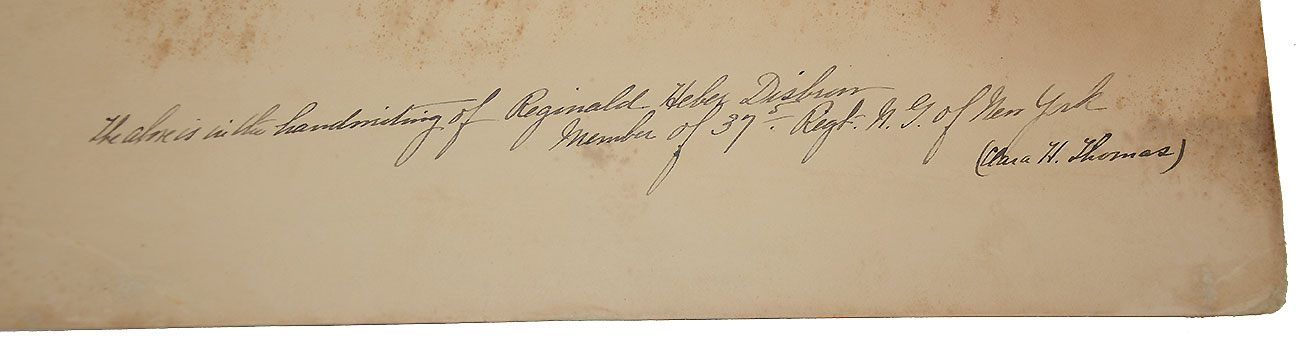 The above is in the handwriting of Reginald Heber Disbrow
Member of 37 Regt. N. G. of New York
(Clara H. Thomas)